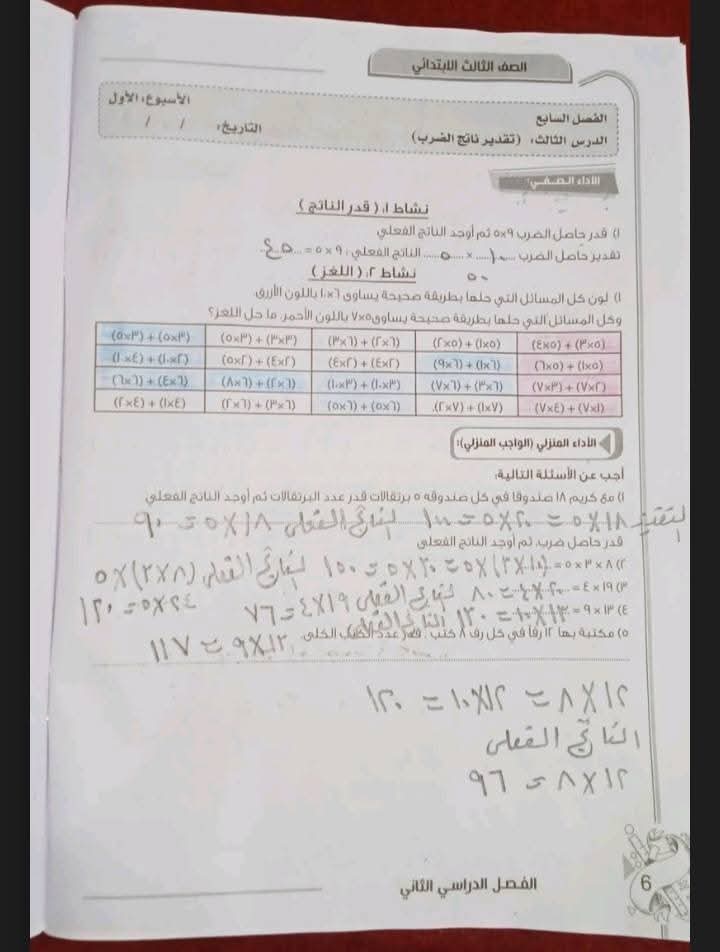 الصف الثالث الابتدائي
الفصل السابع
الأسبوع: الأول
الدرس الثالث: (تقدير ناتج الضرب)
التاريخ: / /
الأداء الصفي:
نشاط ١: (قدر الناتج)
١) قدر حاصل الضرب ٩×٥ ثم أوجد الناتج الفعلي
تقدير حاصل الضرب ١٠ × ٥ الناتج الفعلي: ٩×٥ = ٤٥
٥٠
نشاط ٢: (اللغز)
١) لون كل المسائل التي حلها بطريقة صحيحة يساوي ٦×١٠ باللون الأزرق
وكل المسائل التي حلها بطريقة صحيحة يساوي ٥×٧ باللون الأحمر، ما حل اللغز؟
(٥×٣) + (٥×٤) (٥×١) + (٥×٢) (٦×٢) + (٦×٣) (٣×٣) + (٣×٥) (٣×٥) + (٣×٥)
(٥×١) + (٥×٦) (٦×١) + (٦×٩) (٢×٤) + (٢×٤) (٢×٤) + (٢×٥) (٢×١٠) + (٤×١٠)
(٢×٧) + (٣×٧) (٦×٣) + (٦×٧) (٣×١٠) + (٣×١٠) (٦×٢) + (٦×٨) (٦×٤) + (٦×٦)
(١×٧) + (٤×٧) (٧×١) + (٧×٢). (٦×٥) + (٦×٥) (٦×٣) + (٦×٢) (٤×١) + (٤×٢)
الأداء المنزلي (الواجب المنزلي):
أجب عن الأسئلة التالية:
١) مع كريم ١٨ صندوقا في كل صندوقه ٥ برتقالات قدر عدد البرتقالات ثم أوجد الناتج الفعلي
التقدير ١٨×٥ = ٢٠×٥ = ١٠٠ الناتج الفعلى ١٨×٥ = ٩٠
قدر حاصل ضرب، ثم أوجد الناتج الفعلي
٢) ٨ × ٣ × ٥ = (١٠×٣)×٥ = ٣٠×٥ = ١٥٠ الناتج الفعلى (٨×٣)×٥
٢٤×٥ = ١٢٠
٣) ١٩ × ٤ = ٢٠×٤ = ٨٠ الناتج الفعلى ١٩×٤ = ٧٦
٤) ١٣ × ٩ = ١٣×١٠ = ١٣٠ الناتج الفعلى
٥) مكتبة بها ١٢ رفا في كل رف ٨ كتب، قدر عدد الكتب الكلي.
١٣×٩ = ١١٧
١٢×٨ = ١٢×١٠ = ١٢٠
الناتج الفعلى
١٢×٨ = ٩٦
الفصل الدراسي الثاني
6